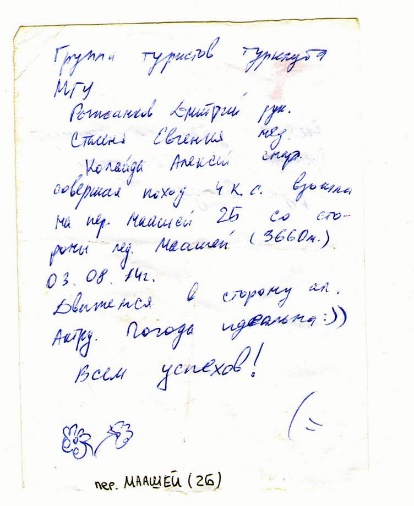 Группа туристов турклуба
МГУ
Дмитрий рук.
Евгения мед.
Алексей снар.
совершая поход 4 к.с. взошла
на пер. Маашей 2Б со сто-
роны лед. Маашей (3660м.)
03.08.14г.
Движемся в сторону ал.
Актру. Погода идеальна :))
Всем успехов!
(=
пер. МААШЕЙ (2Б)